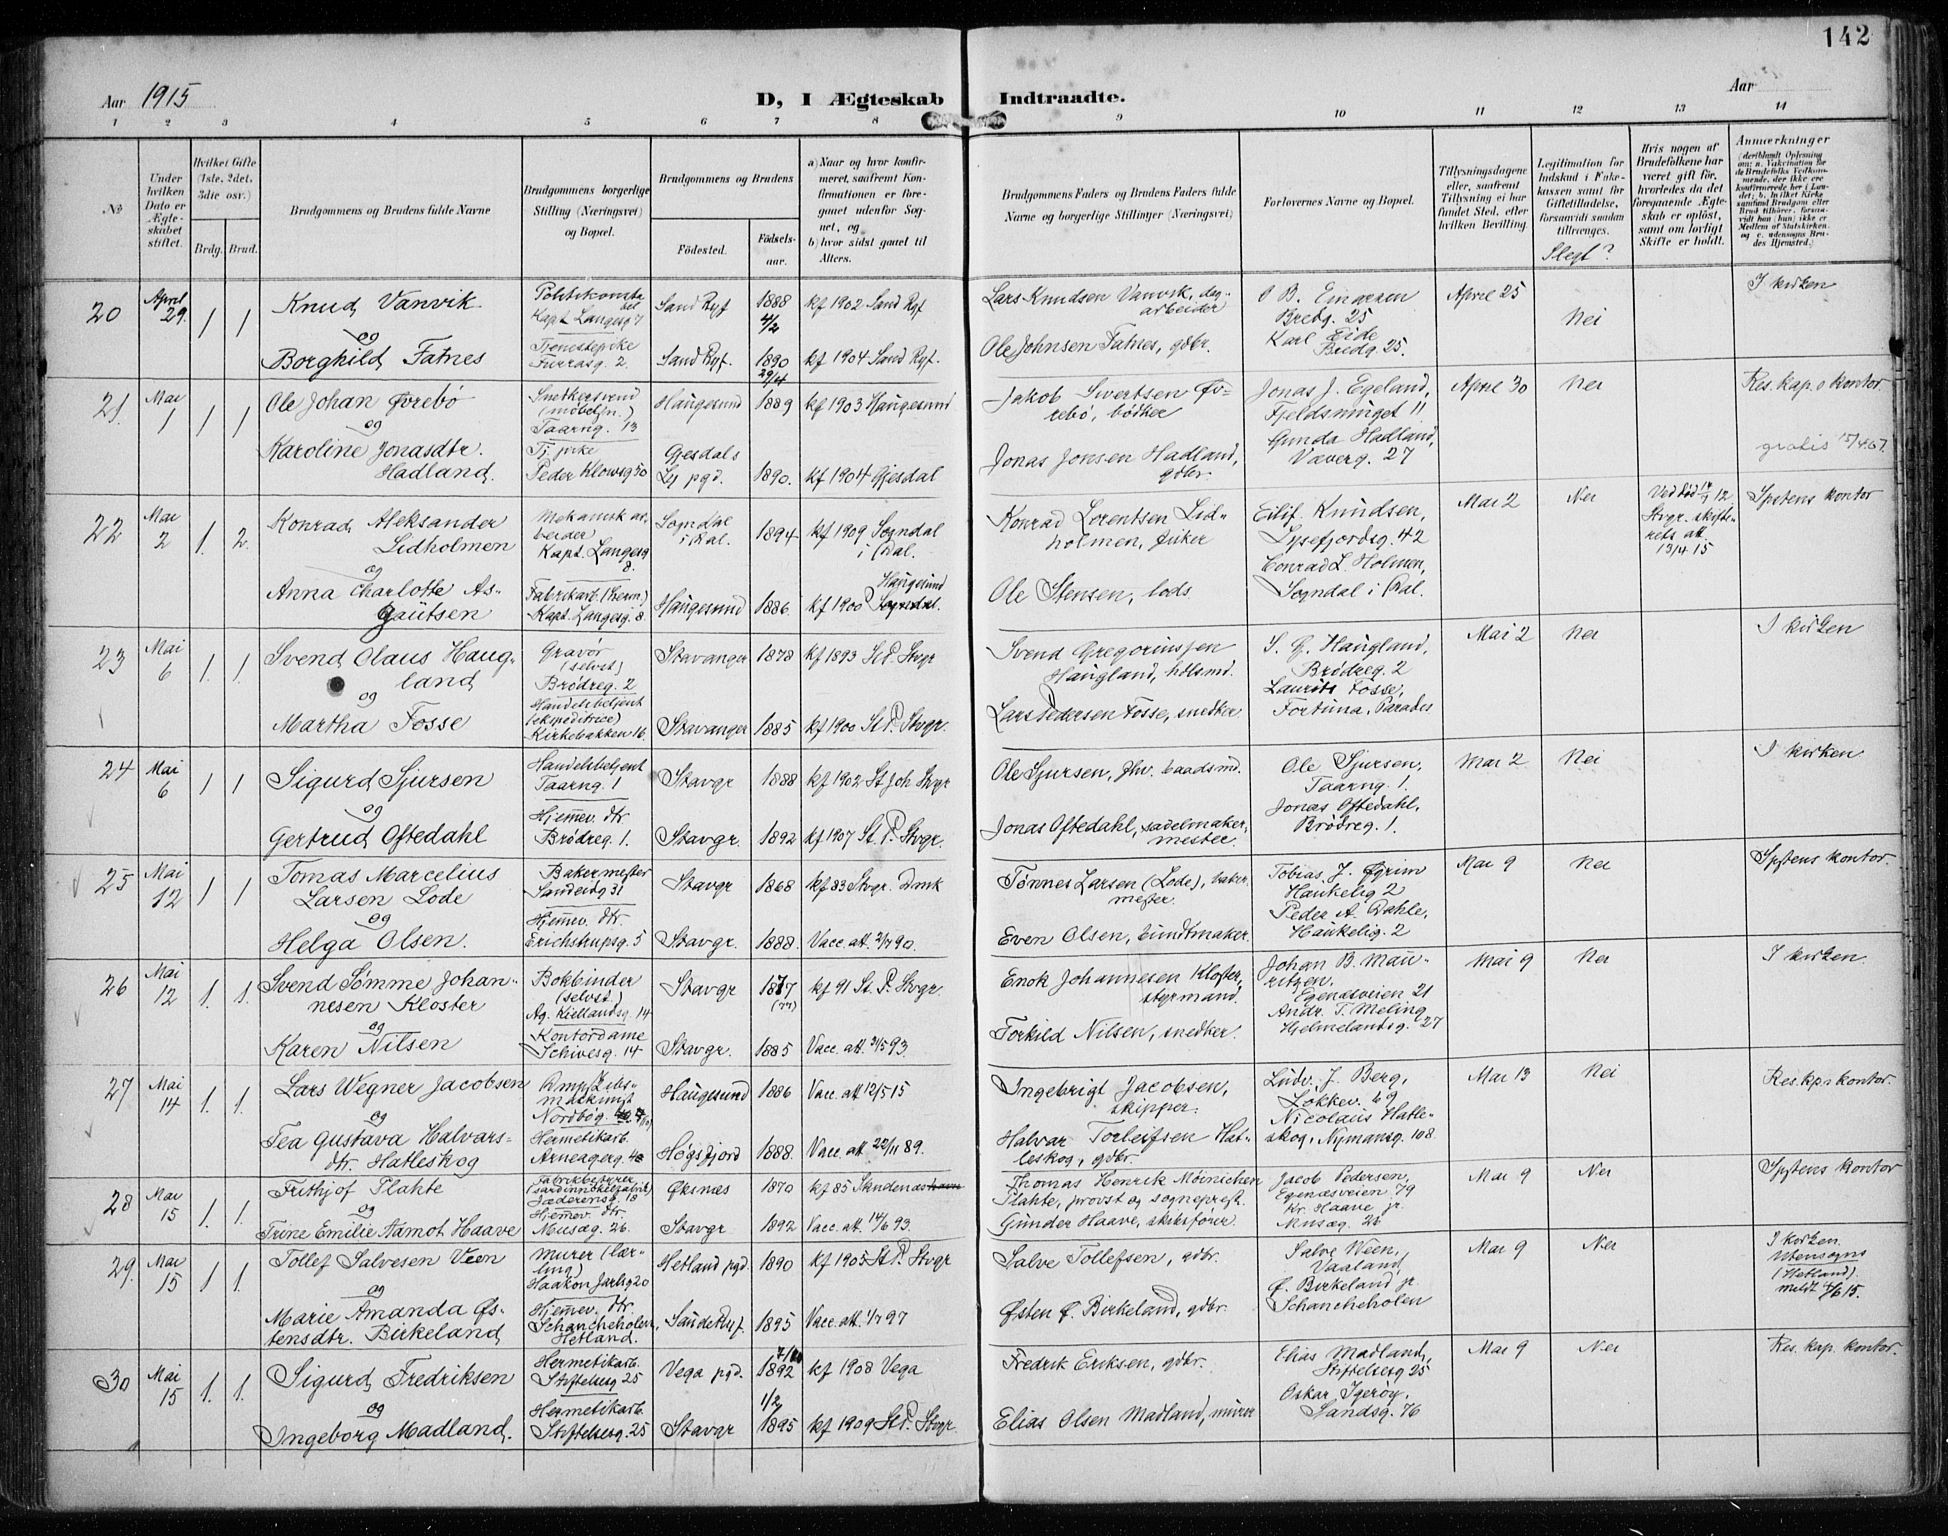 142
Aar 1915
D, I Ægteskab Indtraadte.
Aar
1 2 3 4 5 6 7 8 9 10 11 12 13 14
No
Under hvilken Dato er Ægteskabet stiftet.
Hvilket Gifte (1ste, 2det, 3die osv.)
Brdg. Brud.
Brudgommens og Brudens fulde Navne
Brudgommens borgerlige Stilling (Næringsvei) og Bopæl.
Brudgommens og Brudens
Fødested.
Fødselsaar.
a) Naar og hvor konfirmeret, saafremt Konfirmationen er foregaaet udenfor Sognet, og
b) hvor sidst gaaet til Alters.
Brudgommens Faders og Brudens Faders fulde Navne og borgerlige Stillinger (Næringsvei)
Forlovernes Navne og Bopæl.
Tillysningsdagene eller, saafremt Tillysning ei har fundet Sted, efter hvilken Bevilling.
Legitimation for Indskud i Enkekassen samt for Giftetilladelse, forsaavidt saadan tiltrænges.
Slegt?
Hvis nogen af Brudefolkene har været gift før, hvorledes da det foregaaende Ægteskab er opløst, samt om lovligt Skifte er holdt.
Anmærkninger
20 April 29. 1 1 Knud Vanvik Politikonstabel Kapt. Langesg 7 Sand Ryf 1888 4/2 kf 1902 Sand Ryf Lars Knudsen Vanvik, dagarbeider O B. Einarsen Bredg. 25 April 25 Nei I kirken
og
Borghild Fatnes Tjenestepike Furrasg. 2 Sand Ryf. 1890 29/4 kf 1904 Sand Ryf. Ole Johnsen Fatnes, gdbr. Karl Eide Bredg. 25.
21. Mai 1 1 1 Ole Johan Øvrebø Snekkersvend (møbelsn.) Taarng. 13 Haugesund 1889 kf 1903 Haugesund Jakob Sivertsen Øvrebø, bødker Jonas J. Egeland, Fjeldsmuget 11 April 30 Nei Res. kap.s kontor
og
Karoline Jonasdtr. Hadland. Tj. pike Peder Klowsg 50 Gjesdals Ly pgd. 1890. kf 1904 Gjesdal Jonas Jonsen Hadland, gdbr. Gunda Hadland, Væverg. 27 gratis
22 Mai 2 1. 2. Konrad Aleksander Lidholmen Mekanisk arbeider Kapt. Langesg 8. Sogndal i Dal. 1894 kf 1909 Sogndal i Dal Konrad Lorentsen Lidholmen, fisker Eilif Knudsen, Lysefjordsg. 42 Mai 2 Nei Ved død Stvgr. skifterets att. 13/4 15 Sptens kontor
og
Anna Charlotte Asgautsen Fabrikarb. (herm.) Kapt. Langesg. 8. Haugesund 1886 kf 1900 Haugesund Ole Stensen, lods Conrad L. Holmen, Sogndal i Dal.
23 Mai 6 1. 1. Svend Olaus Haugland Gravør (selvst) Brødreg. 2 Stavanger 1878 kf 1893 St. P. Stvgr Svend Gregoriussen Haugland, S. G. Haugland, Brødreg. 2 Mai 2 Nei I kirken
og
Martha Fosse Handelsbetjent (ekspeditrice) Kirkebakken 16. Stavanger 1885 kf 1900 St. P. Stvgr. Lars Pedersen Fosse, snedker Laurits Fosse, Fortuna, Parades
24 Mai 6 1 1 Sigurd Sjursen Handelsbetjent Taarng. 1 Stavgr 1888 kf 1902 St Joh Stvgr Ole Sjursen, fhv. baadsmd. Ole Sjursen, Taarng. 1. Mai 2 Nei I kirken
og
Gertrud Oftedahl Hjemmev. dtr Brødreg. 1. Stavgr. 1892 kf 1907 St. P. Stvgr. Jonas Oftedahl, sadelmakermester Jonas Oftedahl, Brødreg. 1.
25 Mai 12 1 1 Tomas Marcelius Larsen Lode Bakermester Sandeidg 31 Stavgr 1868 kf 83 Stvgr. Dmk Tønnes Larsen (Lode), bakermester. Tobias J. Øgrim Haukelig 2 Mai 9 Nei Sptens kontor.
og
Helga Olsen. Hjemmev. dtr. Erichstrupsg. 5 Stavgr. 1888. Vacc. att. 2/7 90. Even Olsen, buntmaker. Peder A. Dahle, Haukelig. 2
26 Mai 12 1. 1. Svend Sømme Johannesen Kloster Bokbinder (selvst.) Ag. Kiellandsg. 14 Stavgr 1877 (77) kf 91 St. P. Stvgr. Enok Johannesen Kloster, styrmand. Johan B. Mauritzen, Egenæsveien 21 Mai 9 Nei I kirken.
og
Karen Nilsen Kontordame Schivesg. 14 Stavgr. 1885 Vacc. att. 21/5 93. Torkild Nilsen, snedker. Andr. T. Meling Hjelmelandsg. 27
27 Mai 14 1. 1. Lars Wegner Jacobsen Dmpskibsmaskinist Nordbøg. Haugesund 1886 Vacc. att 12/5 15 Ingebrigt Jacobsen, skipper. Ludv. J. Berg, Løkkev. 69 Mai 13 Nei Res. kps kontor.
og
Tea Gustava Halvarsdtr. Hatleskog Hermetikarb. Arneagerg. 48 Høgsfjord 1888. Vacc. att 22/11 89. Halvar Torleifsen Hatleskog, gdbr. Nicolaus Hatleskog, Nymansg. 108.
28 Mai 15 1. 1. Frithjof Plahte Fabrikbestyrer Jæderensg. 18 Øksnes 1870 kf 85 Sandenæs Thomas Henrik Møinichen Plahte, provst og sogneprest. Jacob Pedersen, Egenæsveien 79 Mai 9 Nei Sptens kontor
og
Trine Emilie Aamot Haave Hjemmev. dtr. Musæg. 26. Stavgr 1892 Vacc. att. 14/6 93. Gunder Haave, skibsfører. Kr. Haave jr. Musæg. 26
29. Mai 15 1 1. Tollef Salvesen Veen Murer (lærling) Haakon Jarlsg 20 Hetland pgd. 1890 kf 1905 St. P. Stvgr Salve Tollefsen, gdbr. SalveWeen, Vaaland, Mai 9 Nei I kirken Utensogns (Hetland) meldt 4/6 15.
og
Marie Amanda Østensdtr. Birkeland Hjemmev. dtr. Schancheholen, Hetland. Saude Ryf. 1895 Vacc. att. 1/7 97 Østen Ø. Birkeland, gdbr. Ø. Birkeland jr. Schancheholen
30 Mai 15 1. 1. Sigurd Fredriksen Hermetikarb. Stiftelsesg 25 Vega pgd. 1892 kf 1908 Vega Fredrik Eriksen, gdbr. Elias Madland, Stiftelsesg 25 Mai 9 Nei Res. kap. kontor.
og
Ingeborg Madland. Hermetikarb. Stiftelsesg. 25 Stavgr 1/2 1895 kf 1909 St. P. Stvgr. Elias Olsen Madland, murer Oskar Igerøy, Sandsg. 76